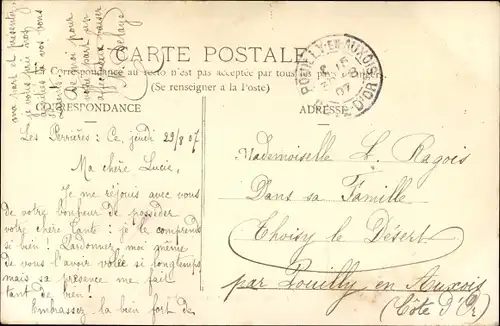 CARTE POSTALE
La Correspondance au recto n'est pas acceptée par tous les pays
(Se renseigner à la Poste)
CORRESPONDANCE
ADRESSE
POUILLY-EN-AUXOIS
15
07
D'OR
Les Perrières : Ce, jeudi 29/8 07
Ma chère Lucie,
Je me réjouis avec vous
de votre bonheur de posséder
votre chère tante : je le comprends
si bien ! Pardonnez moi même
de vous l'avoir volée si longtemps
mais sa présence me fait
tant de bien !
Embrassez la bien fort de
ma part et présentez
de vos
De moi pour
votre part un
affectueux baiser
Delaye
Mademoiselle L. Ragois
Dans sa Famille
Choisy le Désert
par Pouilly en Auxois
(Côte d'Or)